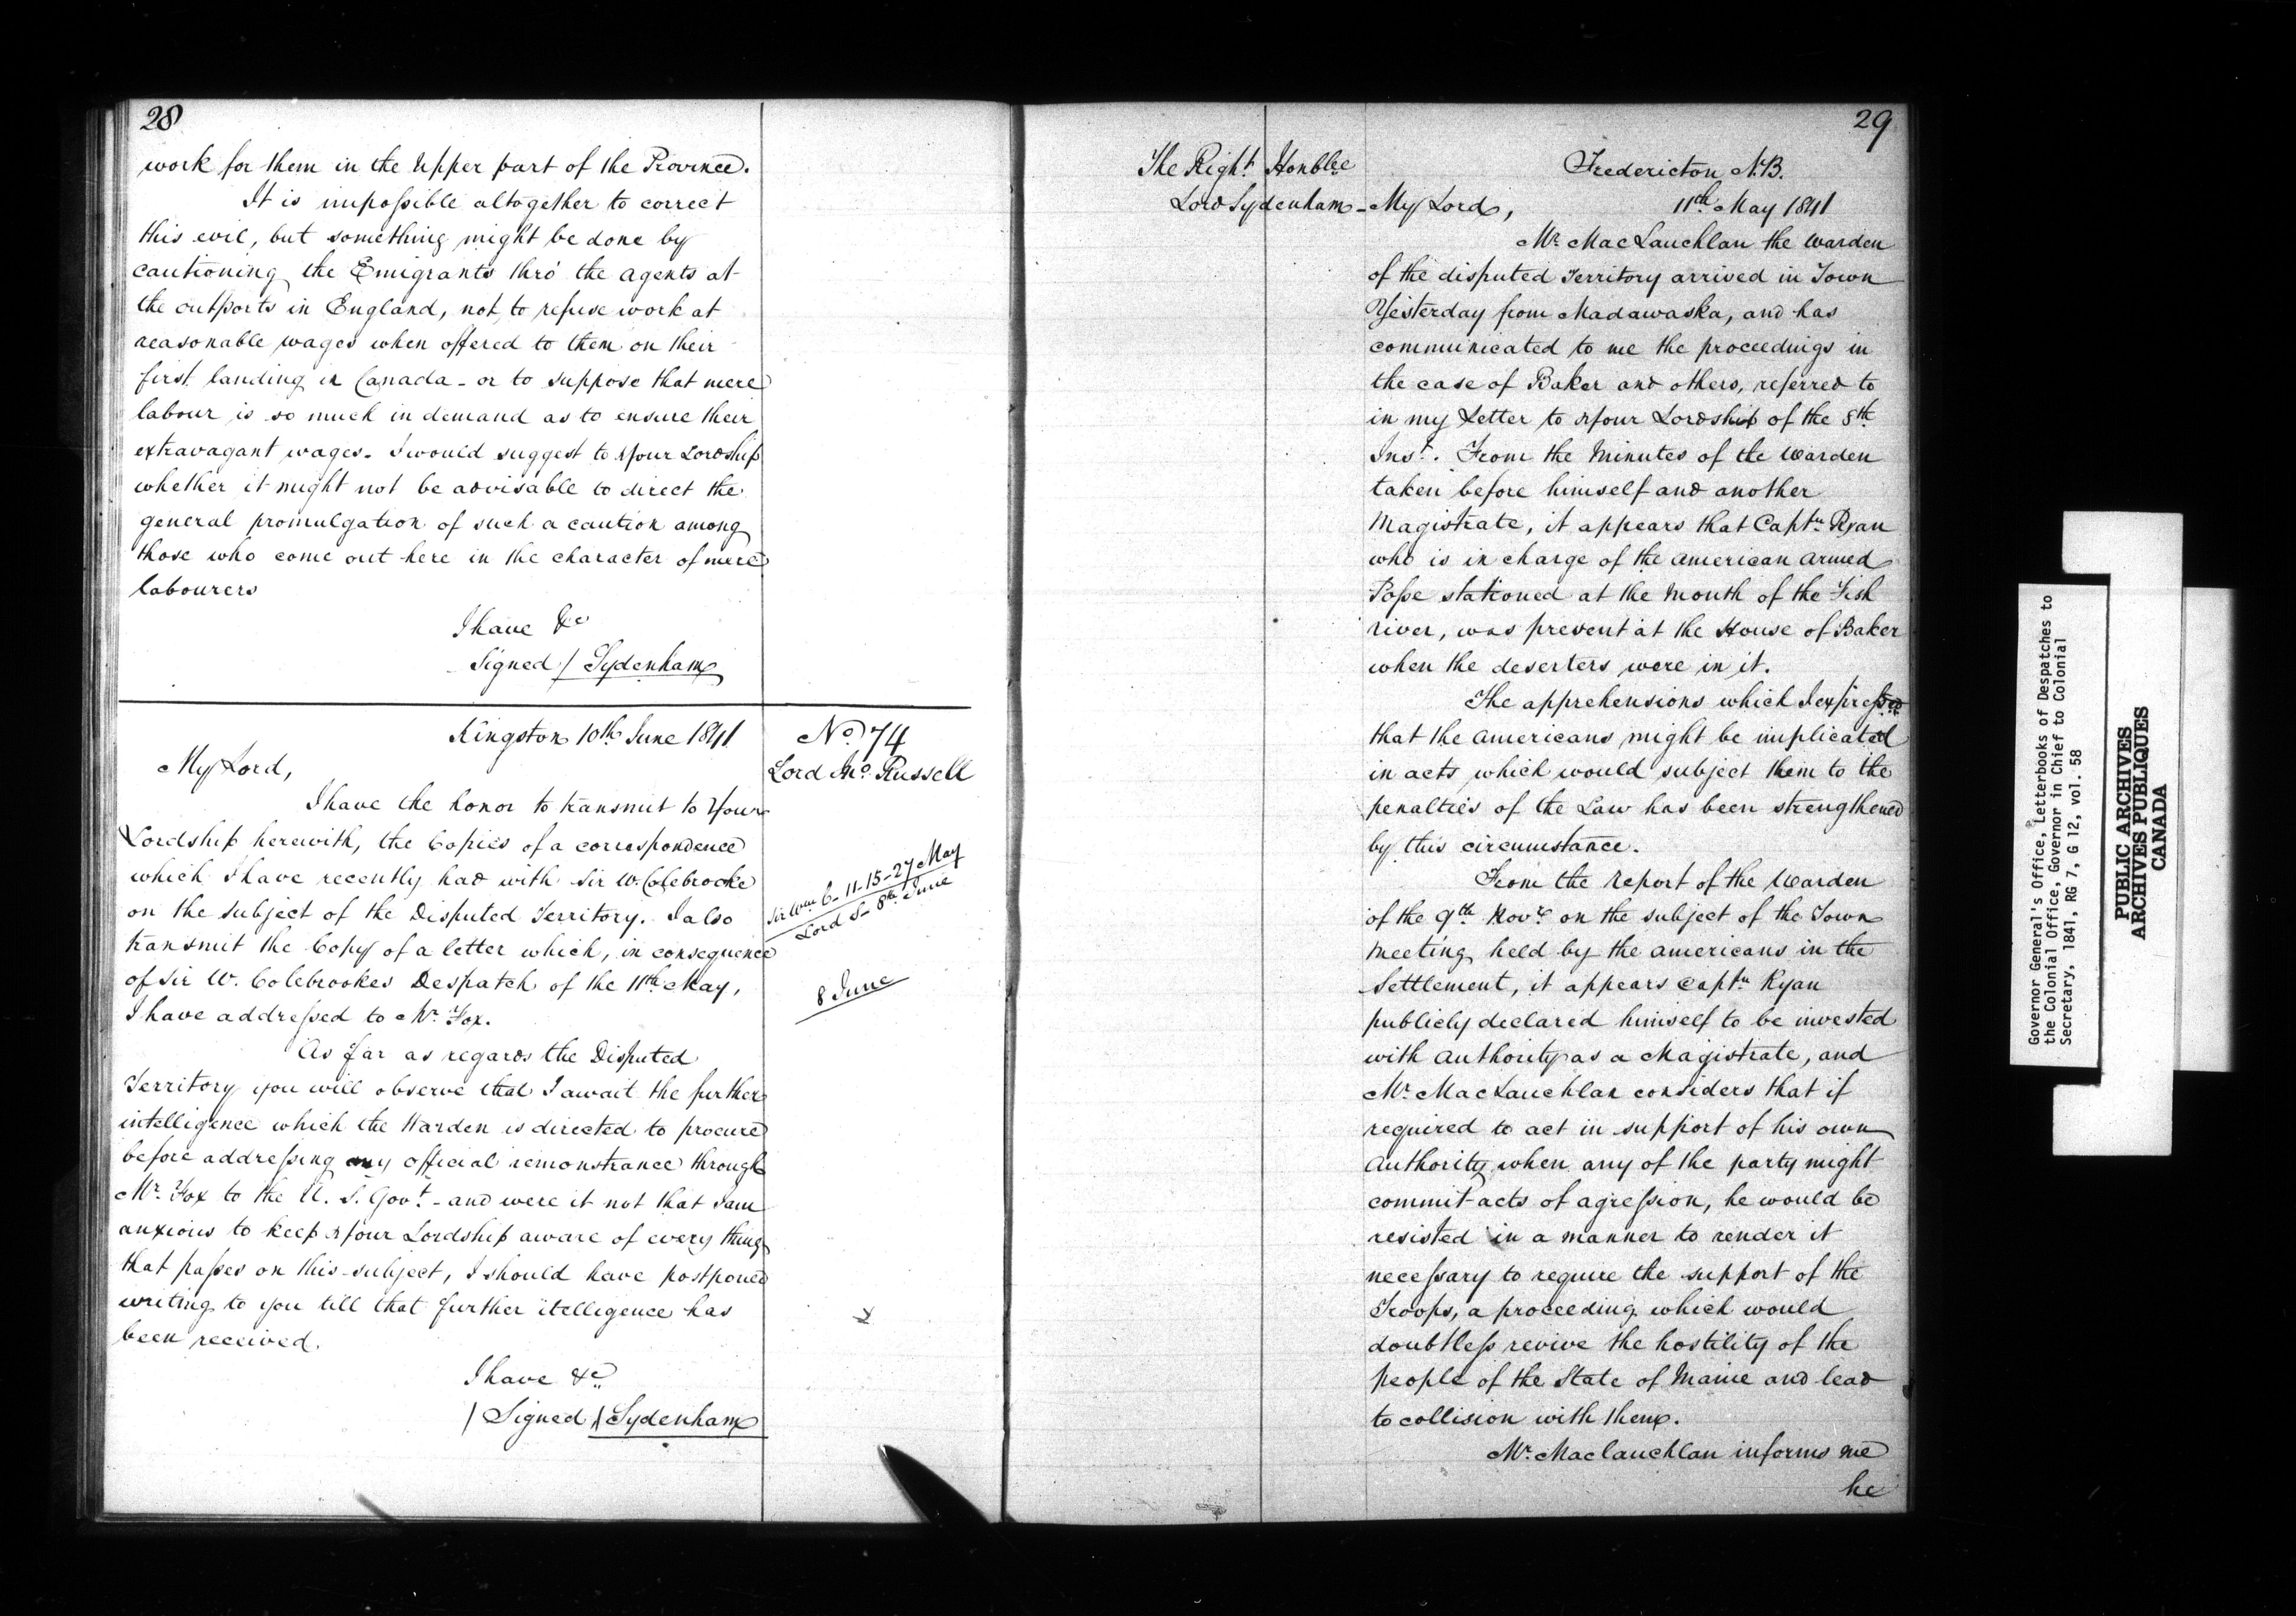 28
work for them in the Upper part of the Province.
It is impossible altogether to correct
this evil, but something might be done by
cautioning the Emigrants thro' the agents at
the outports in England, not to refuse work at
reasonable wages when offered to them on their
first landing in Canada - or to suppose that mere
labour is so much in demand as to ensure their
extravagant wages. I would suggest to Your Lordship
whether it might not be advisable to direct the
general promulgation of such a caution among
those who come out here in the character of mere
labourers
I have &c
Signed / Sydenham
Kingston 10th June 1841
No. 74
Lord Jno. Russell
My Lord,
I have the honor to transmit to Your
Lordship herewith, the Copies of a correspondence
which I have recently had with Sir W. Colebrooke
on the subject of the Disputed Territory. I also
transmit the Copy of a letter which, in consequence
of Sir W. Colebrookes Despatch of the 11th May,
I have addressed to Mr. Fox.
Sir Wm C - 11-15-27 May
Lord S - 8th June
8 June
As far as regards the Disputed
Territory you will observe that I await the further
intelligence which the Warden is directed to procure
before addressing any official remonstrance through
Mr. Fox to the U. S. Govt. - and were it not that I am
anxious to keep Your Lordship aware of every thing
that passes on this subject, I should have postponed
writing to you till that further itelligence has
been received.
I have &c
/ Signed / Sydenham
29
The Right Honble
Lord Sydenham -
Fredericton N.B.
11th May 1841
My Lord,
Mr. MacLauchlan the Warden
of the disputed Territory arrived in Town
Yesterday from Madawaska, and has
communicated to me the proceedings in
the case of Baker and others, referred to
in my Letter to Your Lordship of the 8th
Inst. From the Minutes of the Warden
taken before himself and another
Magistrate, it appears that Captn. Ryan
who is in charge of the American Armed
Posse stationed at the Mouth of the Fish
river, was present at the House of Baker
when the deserters were in it.
The apprehensions which I expressed
that the Americans might be implicated
in acts which would subject them to the
penalties of the Law has been strengthened
by this circumstance.
From the Report of the Warden
of the 9th Novr. on the subject of the Town
Meeting held by the Americans in the
Settlement, it appears Captn Ryan
publicly declared himself to be invested
with Authority as a Magistrate, and
Mr. MacLauchlan considers that if
required to act in support of his own
Authority when any of the party might
commit acts of agression, he would be
resisted in a manner to render it
necessary to require the support of the
Troops, a proceeding which would
doubtless revive the hostility of the
people of the State of Maine and lead
to collision with them.
Mr. Maclauchlan informs me
he
Governor General's Office, Letterbooks of Despatches to
the Colonial Office, Governor in Chief to Colonial
Secretary, 1841, RG 7, G 12, vol. 58
PUBLIC ARCHIVES
ARCHIVES PUBLIQUES
CANADA